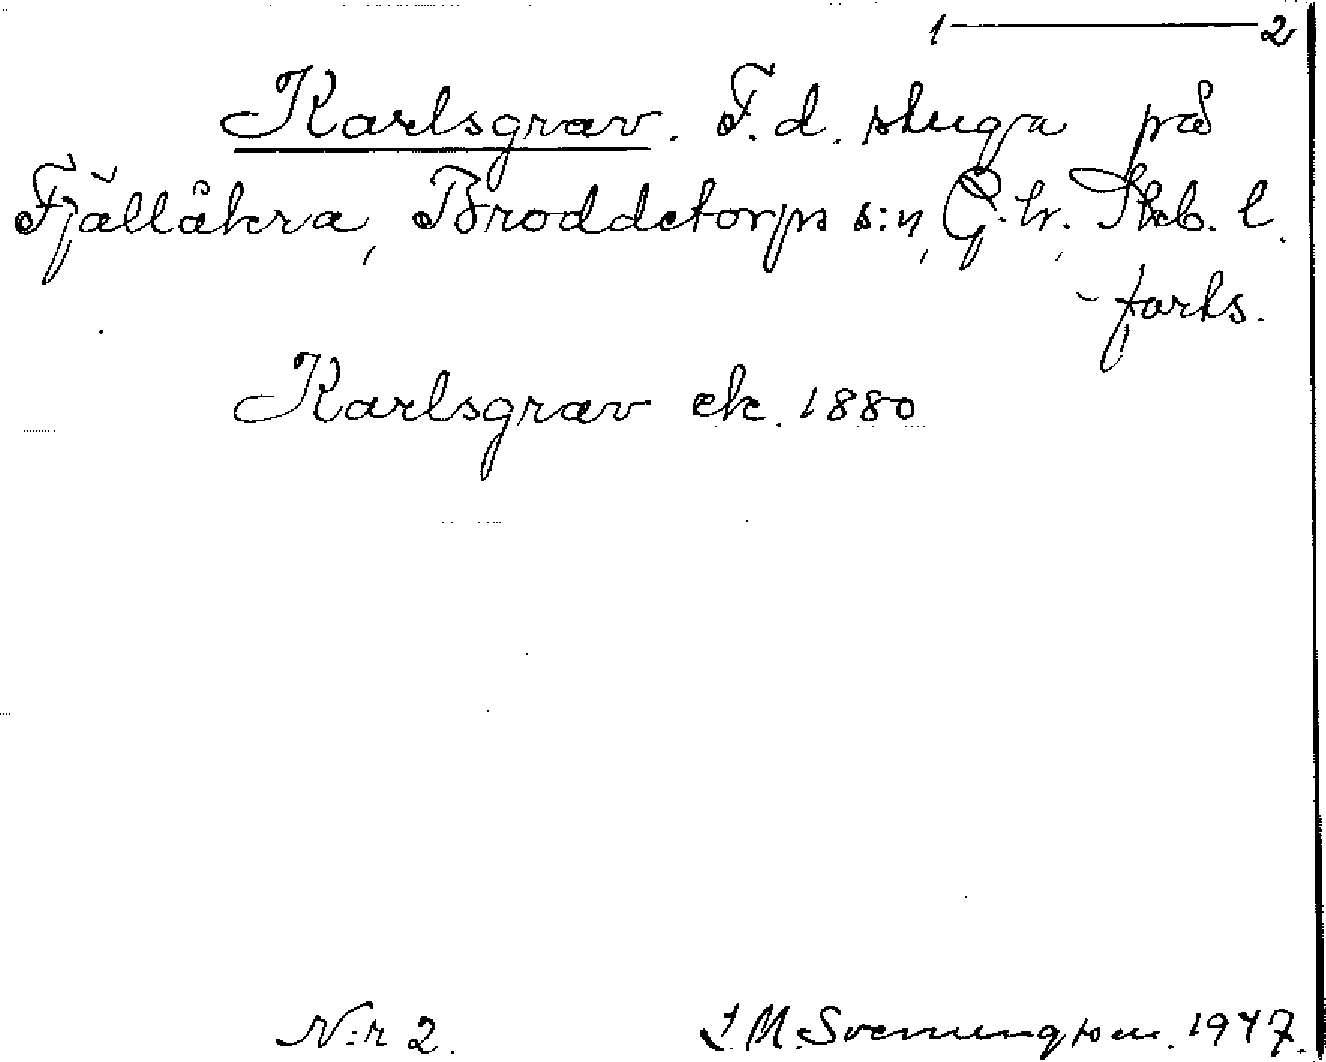 1 — 2
Karlsgrav. F.d. stuga på
Fjällåkra, Broddetorps s:n, G. hr, Skb. l.
- forts.
Karlsgrav ek. 1880
N:r 2. I.M. Svenungsson. 1947.